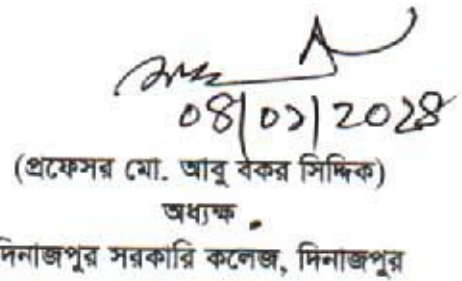 ০৪|০১|২০২৪
(প্রফেসর মো. আবু বকর সিদ্দিক)
অধ্যক্ষ
দিনাজপুর সরকারি কলেজ, দিনাজপুর